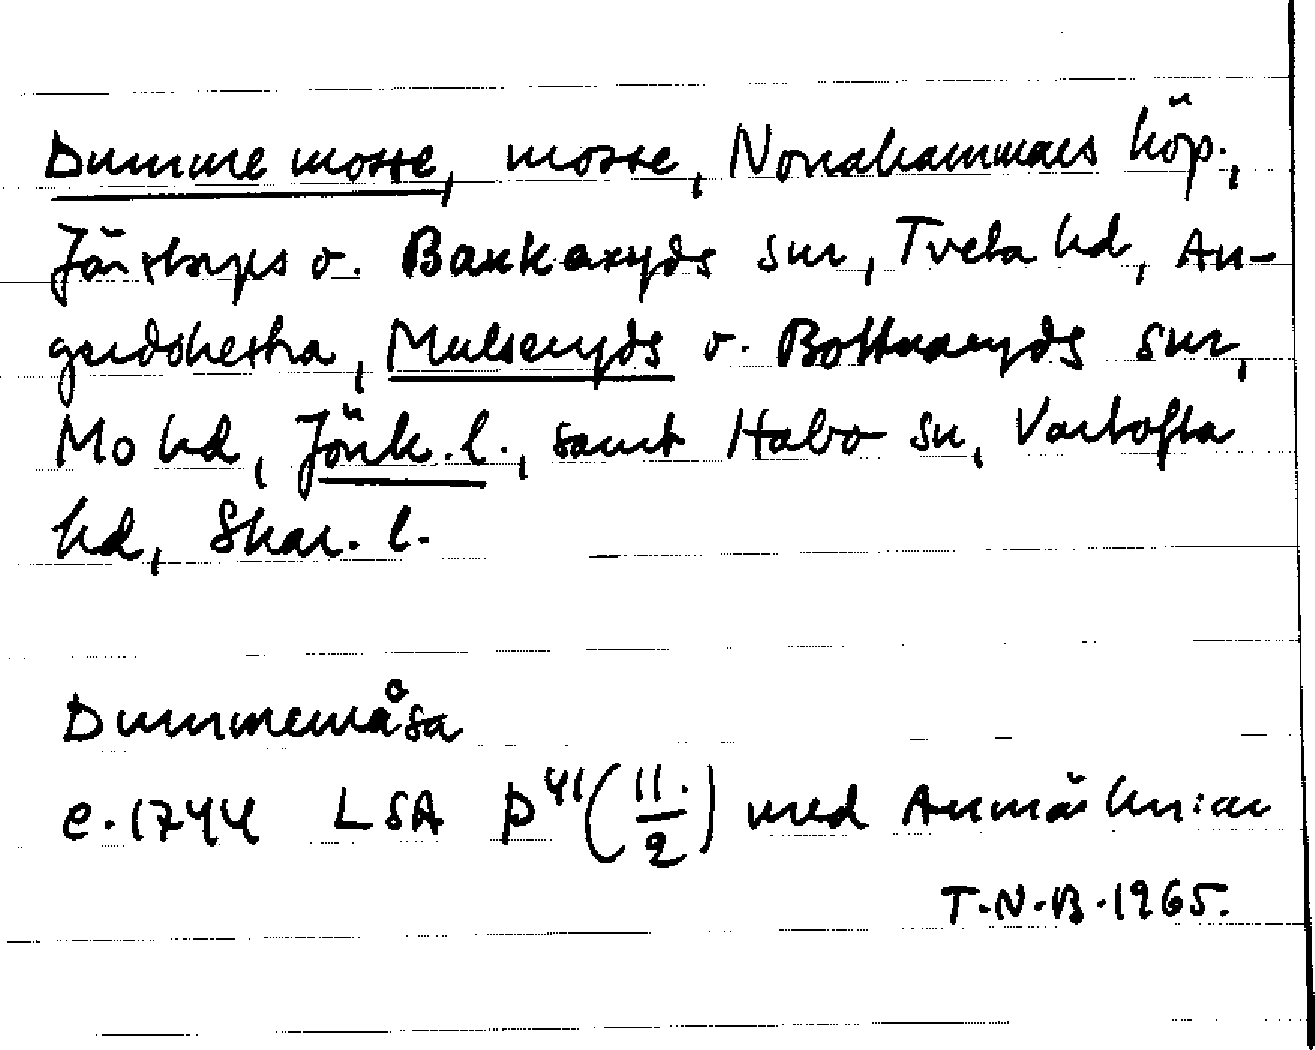 Dumme mosse, mosse, Norrahammars köp.,
Järstorps o. Bankeryds snr, Tveta hd, An-
gerdshestra, Mulseryds o. Bottnaryds snr,
Mo hd, Jönk. l., samt Habo sn, Vartofta
hd, Skar. l.
Dummemåsa
e. 1744 LSA D⁴¹(11./2) med Anmärkn:ar
T.N.B. 1965.